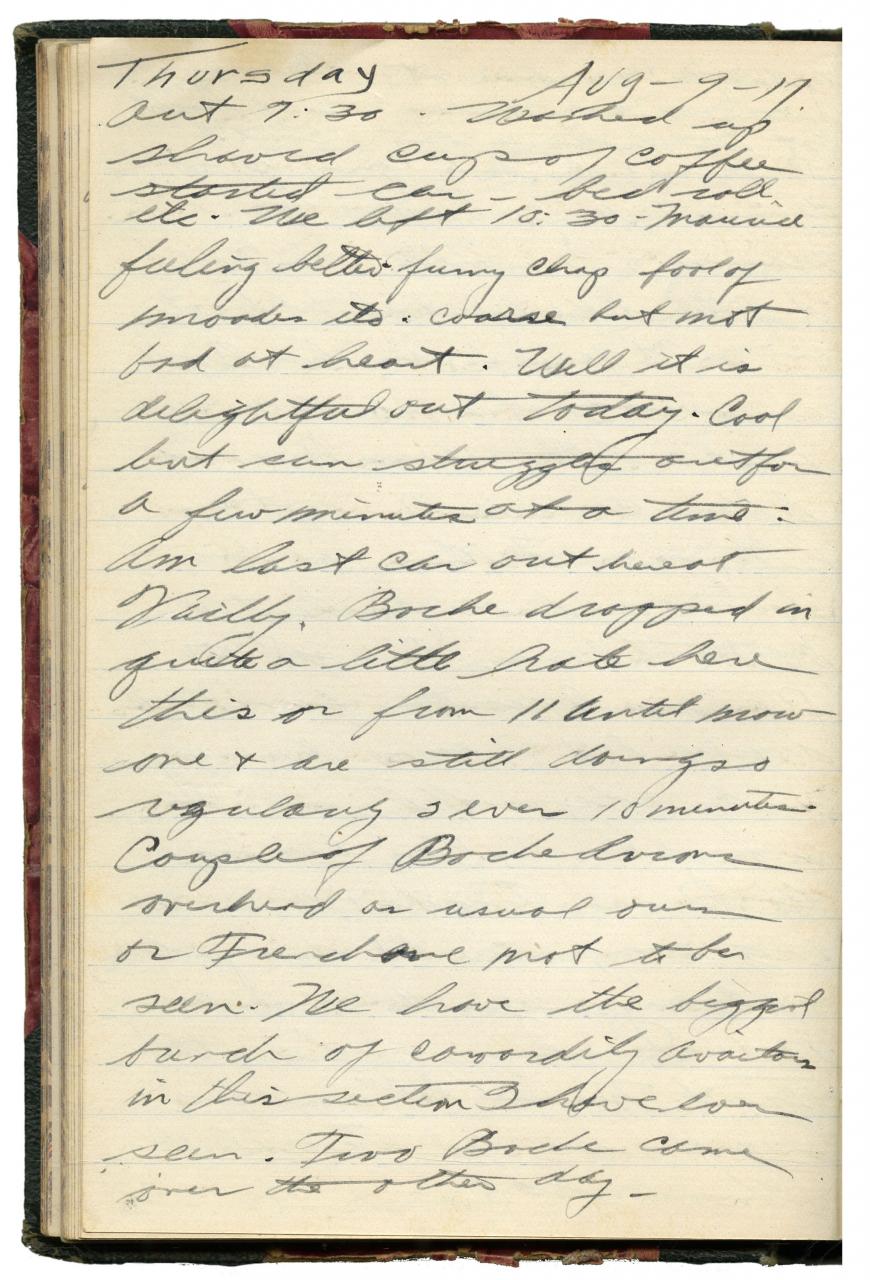 Thursday Aug-9-17
Out 7:30. Washed up
shaved cup of coffee
started car - bed roll
etc. We left 10:30 - Maurice
feeling better funny chap fool of
moodes etc. coarse but not
bad at heart. Well it is
delightful out today. Cool
but sun struggles out for
a few minutes at a time.
Am last car out here at
Vailly. Boche dropped in
quite a little hate here
this or from 11 until now
one & are still doing so
regularly 3 ever 10 minutes.
Couple of Boche Avions
overhead as usual ours
or French are not to be
seen. We have the biggest
bunch of cowardily avaitors
in this section I have ever
seen. Two Boche came
over the other day -